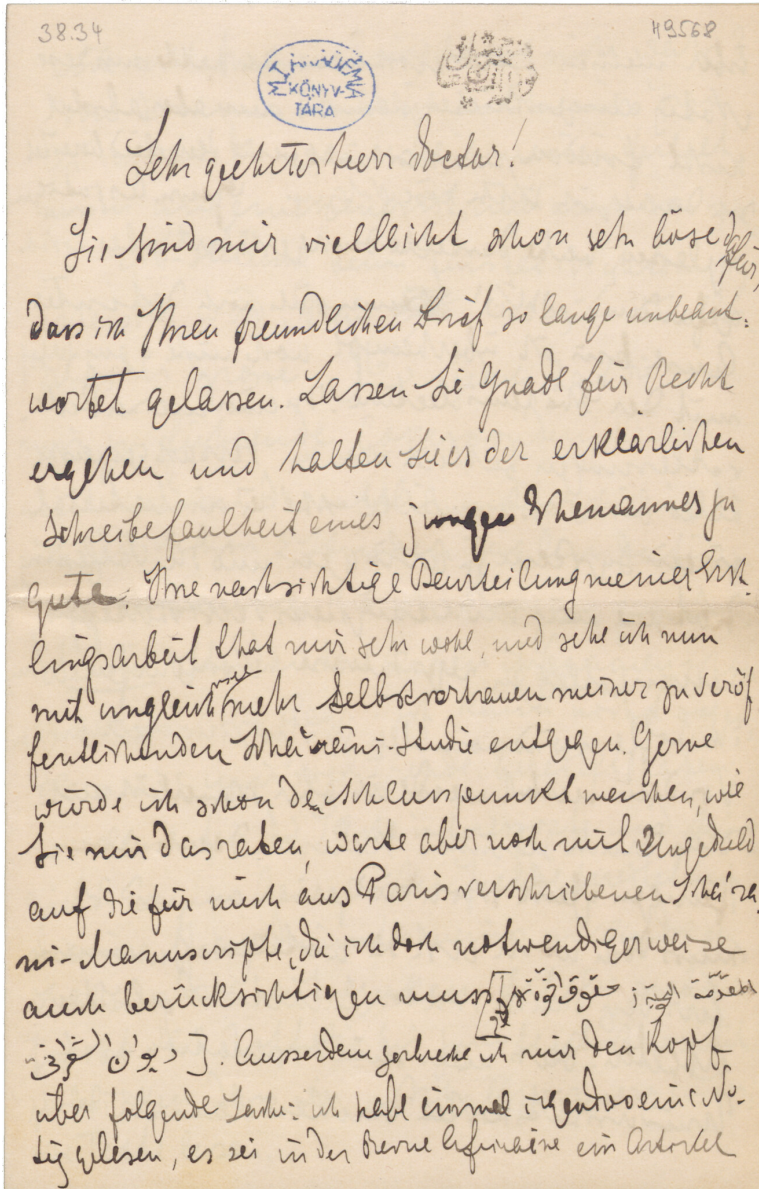 38.34
49568
M. T. AKADÉMIA
KÖNYV-
TÁRA
Sehr geehrter Herr Doctor!
Sie sind mir vielleicht schon sehr böse da-
für,
dass ich Ihren freundlichen Brief so lange unbeant-
wortet gelassen. Lassen Sie Gnade für Recht
ergehen und halten Sie es der erklärlichen
Schreibefaulheit eines jungen Ehemannes zu
Gute. Ihre nachsichtige Beurteilung meiner Erst-
lingsarbeit that mir sehr wohl, und sehe ich nun
mit ungleich mehr Selbstvertrauen meiner zu veröf
fentlichenden Studie entgegen. Gerne
würde ich schon den Schlusspunkt machen, wie
Sie mir das raten, warte aber noch mit Ungeduld
auf die für mich aus Paris verschriebenen Scha'ra
ni-Manuscripte, die ich doch notwendigerweise
auch berücksichtigen muss [المقدمة
ديوان الشعراني]. Ausserdem zerbreche ich mir den Kopf
über folgende Sache: ich habe einmal irgendwo eine No-
tiz gelesen, es sei in der Revue Africaine ein Artikel